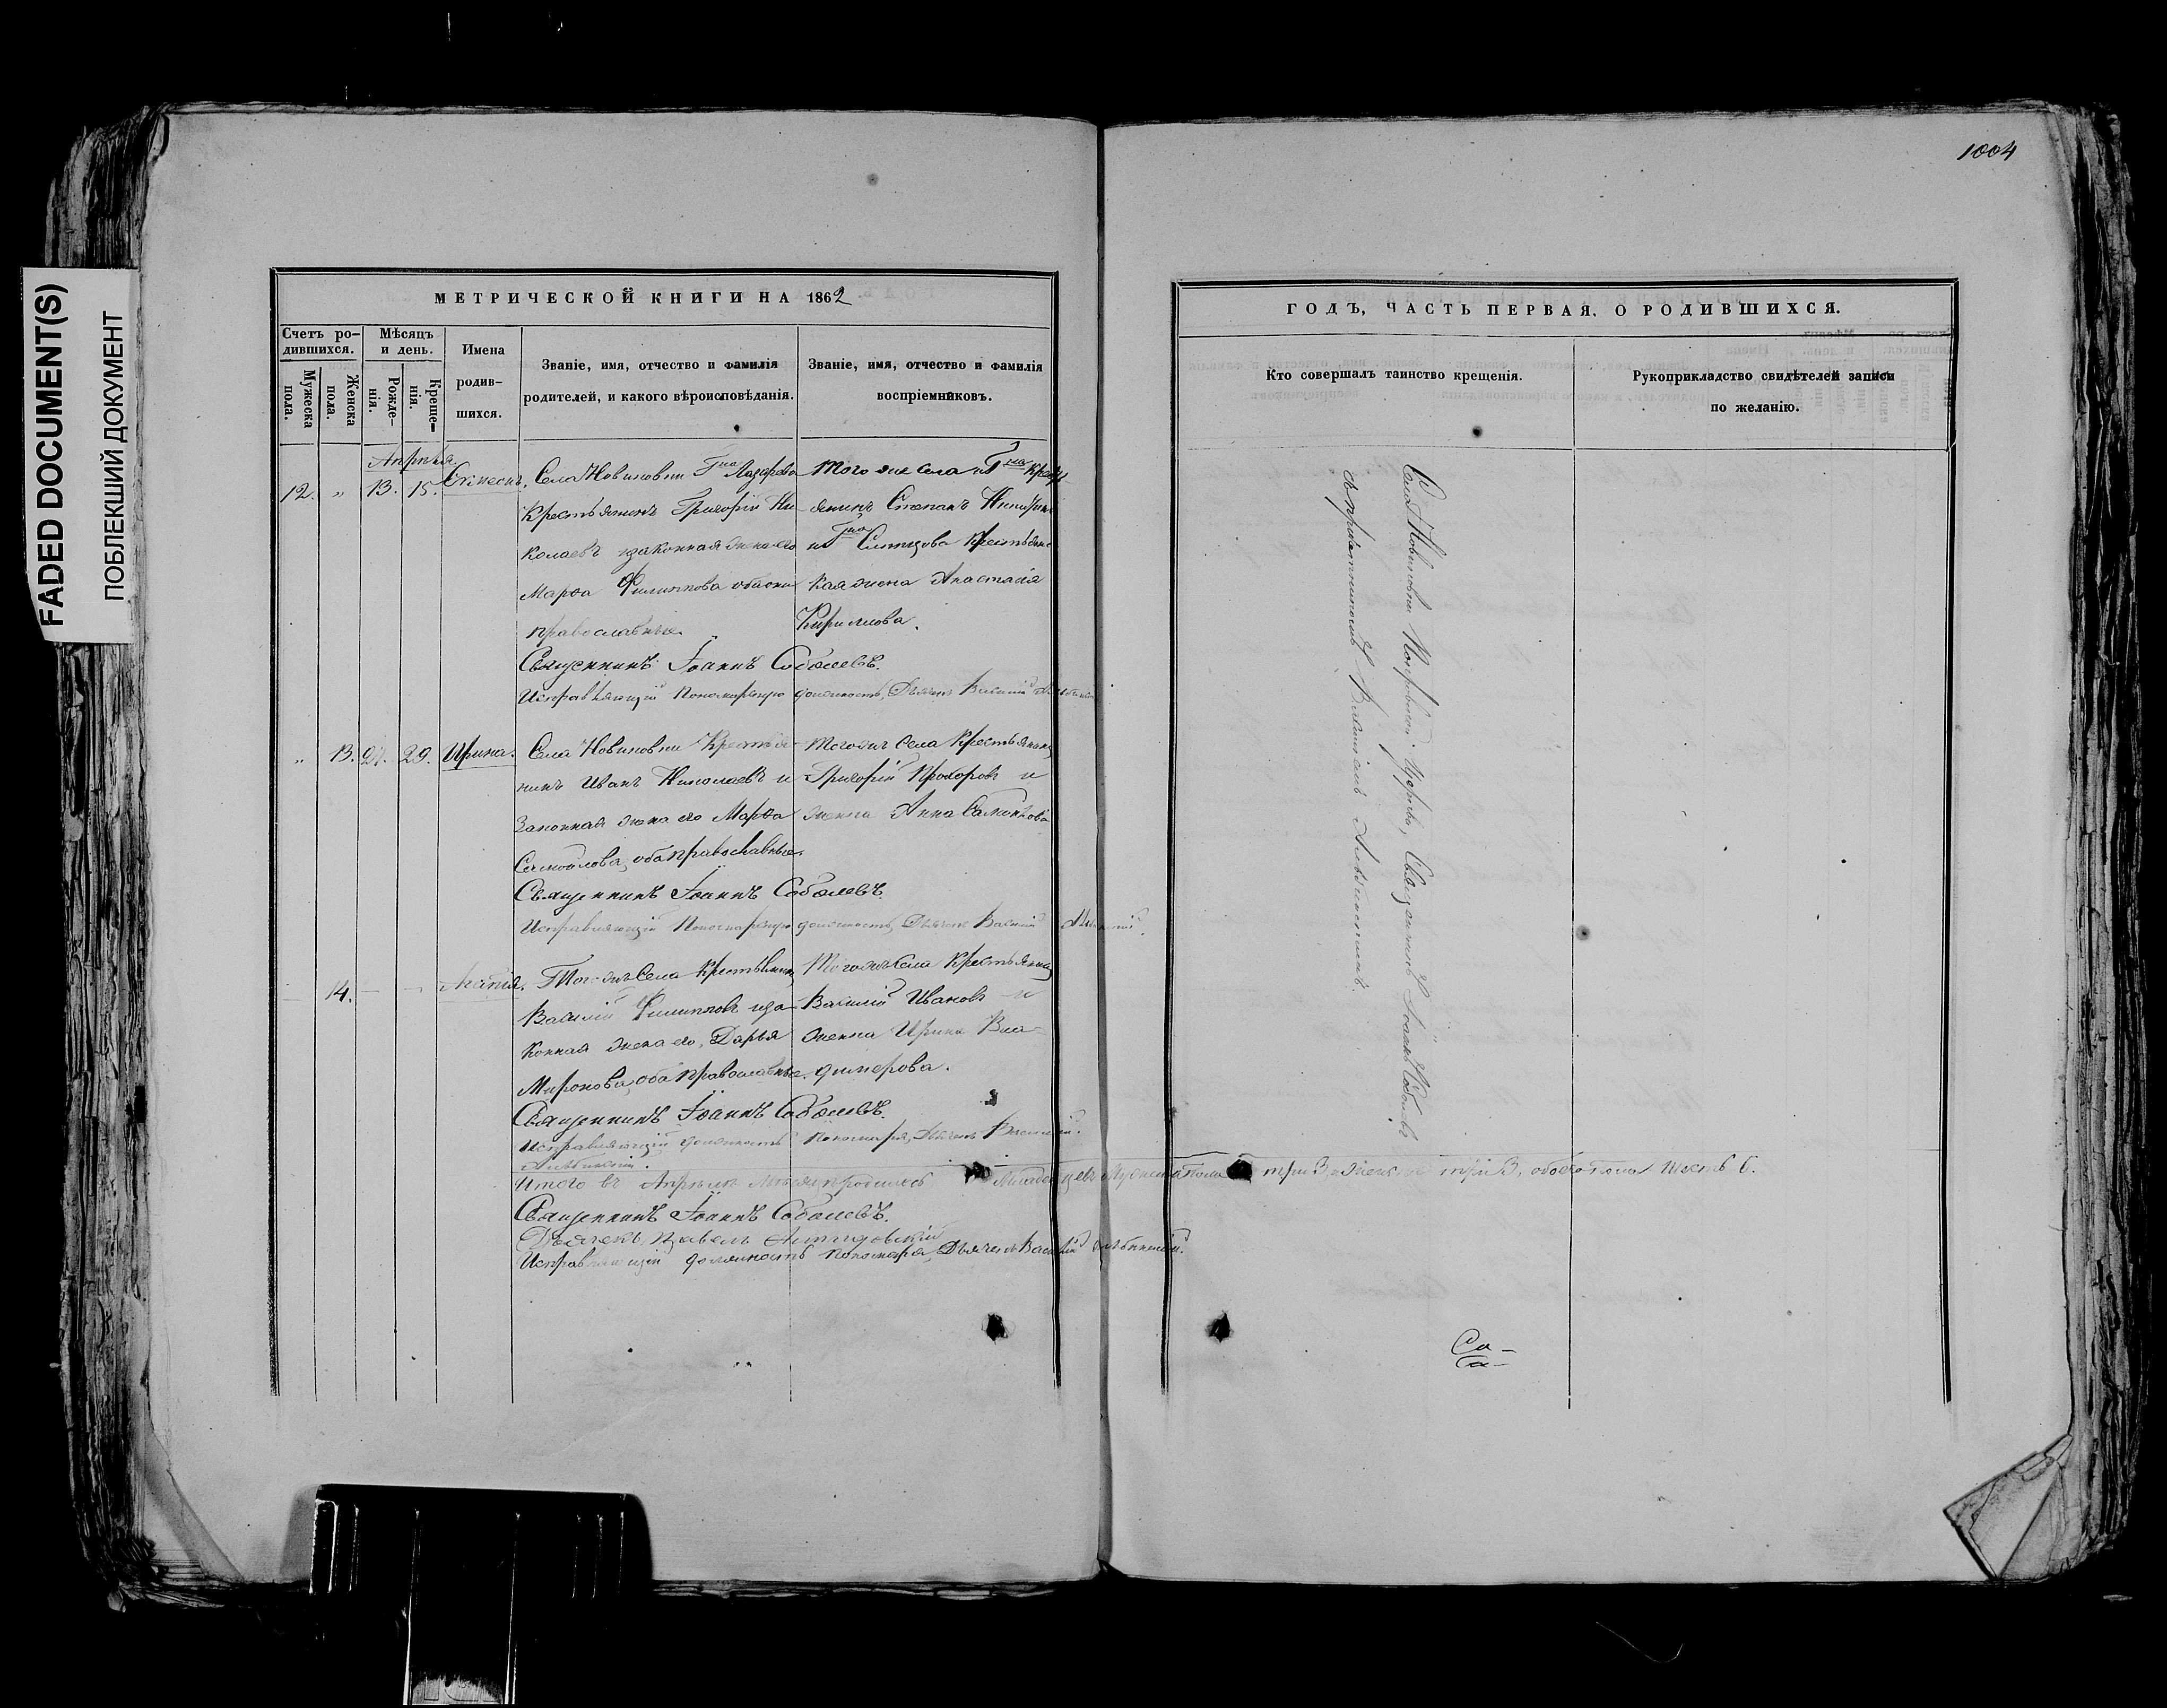 1004
FADED DOCUMENT(S)
ПОБЛЕКШИЙ ДОКУМЕНТ
МЕТРИЧЕСКОЙ КНИГИ НА 1862
Счетъ ро-
дившихся.
Мужеска
пола.
Женска
пола.
Мѣсяцъ
и день.
Рожде-
нія.
Креще-
нія.
Имена
родив-
шихся.
Званіе, имя, отчество и фамилія
родителей, и какого вѣроисповѣданія.
Званіе, имя, отчество и фамилія
воспріемниковъ.
Апрѣля.
12. " 13. 15.
Села Новиновки Гна Лазарева
Крестьянинъ Григорій Ни-
колаевъ и законная жена его
Марѳа Филиппова оба они
православные.
Того же села и Гна
янинъ Степанъ
и Гна Крестьянс
кая жена Анастасія
Кирилова.
Священникъ Іоаннъ Соболевъ.
Исправляющій Пономарскую должность, Дьячекъ Василій
" 13. 27. 29. Ирина.
Села Новиновки Крестья-
нинъ Иванъ Николаевъ и
Законная жена его Марѳа
Самойлова, оба православные.
Того же Села Крестьянинъ
Григорій Прохоровъ и
Анна
Священникъ Іоаннъ Соболевъ.
Исправляющій Пономарскую должность, Дьячекъ Василій
14.
Того-же Села Крестьянинъ
Василій Филипповъ и за-
конная жена его, Дарья
Миронова, оба православные.
Того же Села Крестьянинъ
Василій Ивановъ и
Ирина Вла-
димерова.
Священникъ Іоаннъ Соболевъ.
Исправляющій должность Пономаря, Дьячекъ Василій
Итого въ Апрѣлѣ Мѣсяцѣ родилось Младенцевъ Мужеска пола три 3, женска три 3, обоего пола шесть 6.
Священникъ Іоаннъ Соболевъ.
Дьячекъ Павелъ
Исправляющій должность Пономаря, Дьячекъ Василій
ГОДЪ, ЧАСТЬ ПЕРВАЯ, О РОДИВШИХСЯ.
Кто совершалъ таинство крещенія.
Рукоприкладство свидѣтелей записи
по желанію.
Села Новиновки Покровской Церкви, Священникъ Іоаннъ Соболевъ
съ причетникомъ Василіемъ
Со-